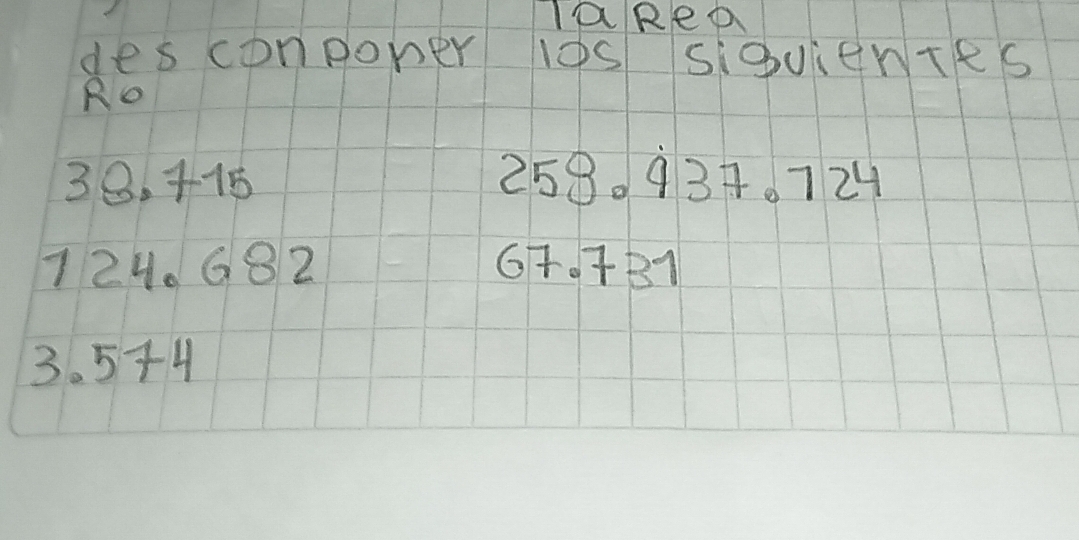 Tarea
desconponer los siguientes
Ro
38.715 258.937.724
124.682 67.731
3.574